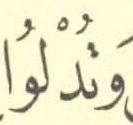 وَتُدْلُوا